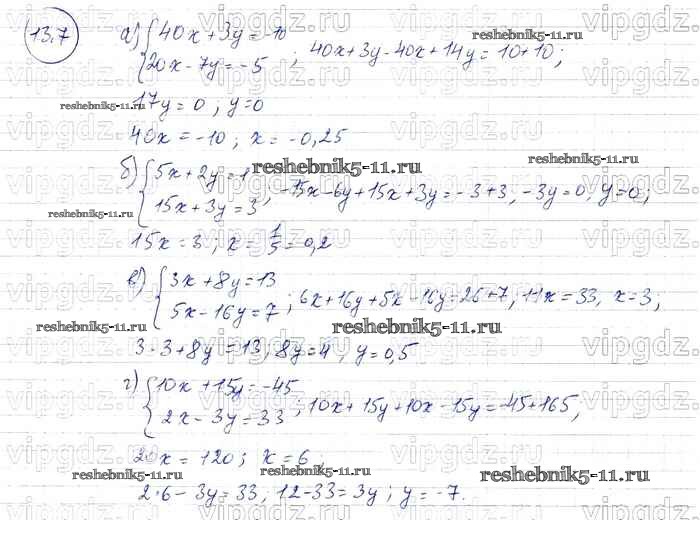 13.7
а) { 40x + 3y = -10
20x - 7y = -5 ; 40x + 3y - 40x + 14y = 10 + 10 ;
17y = 0 , y = 0
40x = -10 ; x = -0,25
б) { 5x + 2y = 1
15x + 3y = 3 , -15x - 6y + 15x + 3y = -3 + 3 , -3y = 0 , y = 0 ;
15x = 3 ; x = 1/5 = 0,2
в) { 3x + 8y = 13
5x - 16y = 7 ; 6x + 16y + 5x - 16y = 26 + 7 ; 11x = 33 , x = 3 ;
3·3 + 8y = 13 , 8y = 4 , y = 0,5
г) { 10x + 15y = -45
2x - 3y = 33 ; 10x + 15y + 10x - 15y = -45 + 165 ,
20x = 120 ; x = 6 ;
2·6 - 3y = 33 , 12 - 33 = 3y ; y = -7 .
reshebnik5-11.ru
vipgdz.ru